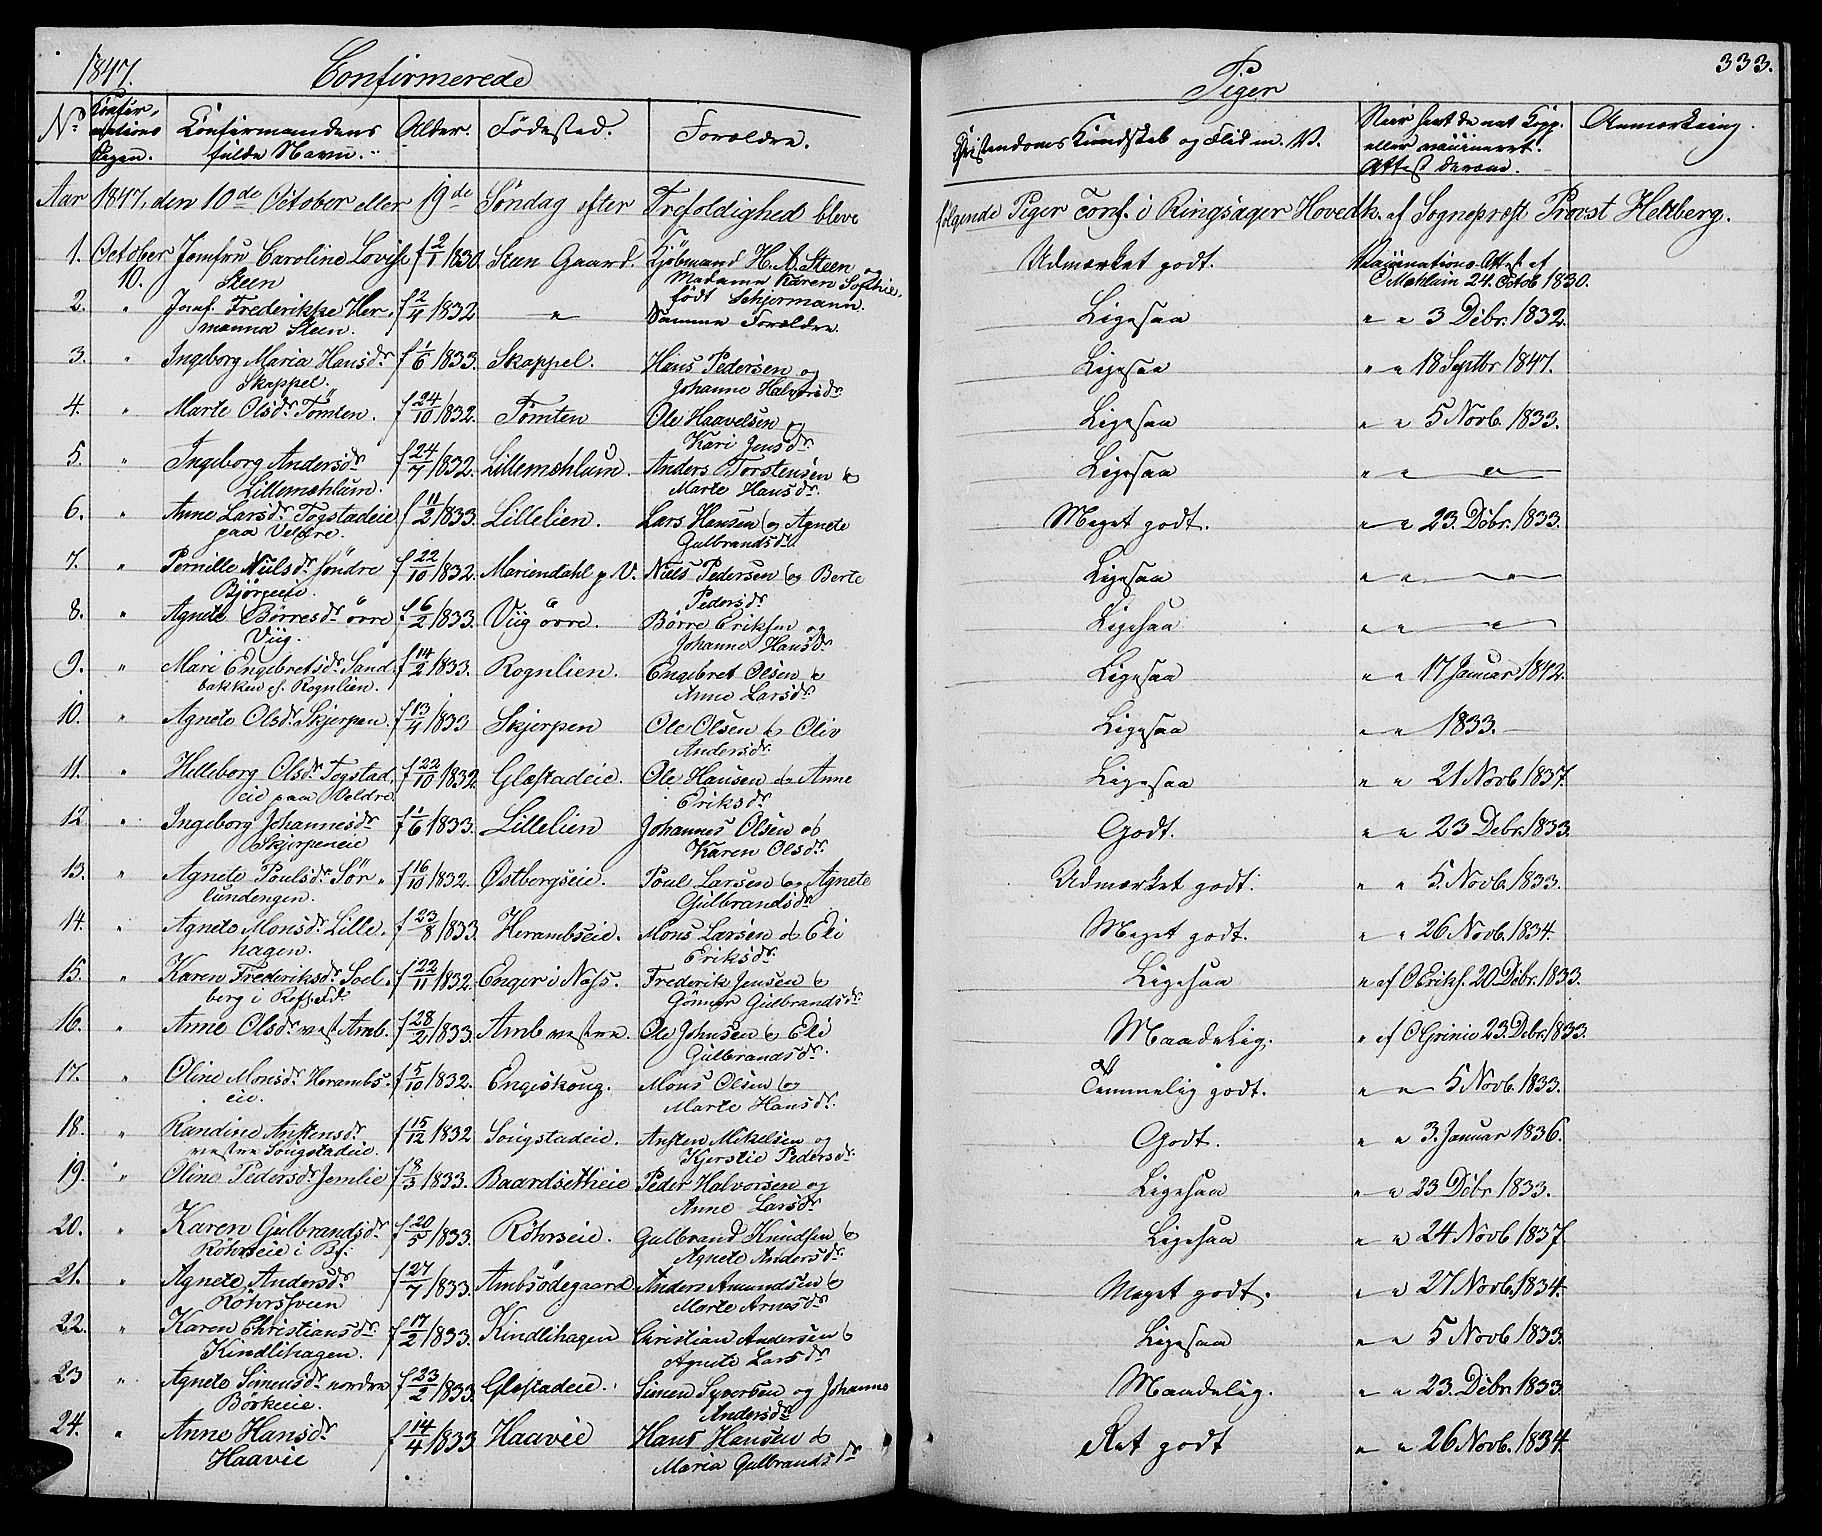 1847. Confirmerede
Piger 333.
No Confirmations Dagen. Confirmandens fulde Navn. Alder. Fødested. Forældre.
Christendoms Kundskab og Flid m. V. Naar havt de nat. Kopp. eller vaccineret. Attest derom. Anmerkning.
Aar 1847, den 10de October eller 19de Søndag efter Trefoldighed bleve
følgende Piger conf. i Ringsager Hovedk. af Sognepræst Provst Heltberg.
1. October 10. Jomfru Caroline Lovise Steen f 2/1 1830 Steen Gaard. Kjöbmand H. A. Steen og Madame Karen Sophie, født Schjørmann. Udmærket godt. Vaccinations Att. af Mæhlum 24. Octob 1830.
2. " Jomf. Frederikke Hermanna Steen. f 2/4 1832 " Samme Forældre. Ligesaa " " 3 Dcbr. 1832.
3. " Ingeborg Maria Hansdr Skappel. f 1/6 1833. Skappel. Hans Pedersen og Johanne Halvorsdr Ligesaa " " 18 Septbr 1847.
4. " Marte Olsdr Tömten. f 24/10 1832. Tömten Ole Haavelsen og Kari Jensdr Ligesaa " " 5 Novb. 1833.
5. " Ingeborg Andersdr Lillemæhlum. f 24/7 1832. Lillemæhlum. Anders Torstensen og Marte Hansdr. Ligesaa " " "
6. " Anne Larsdr Togstadeie paa Veldre. f 11/2 1833. Lillelien. Lars Hansen og Agnete Gulbrandsdr. Meget godt. " " 23. Dcbr. 1833.
7. " Pernille Nielsdr søndre Bjørgeeie. f 22/10 1832. Mariendahl p. V. Niels Pedersen og Berte Pedersdr Ligesaa " " "
8. " Agnete Börresdr övre Viig. f 6/2 1833. Viig övre. Börre Eriksen og Johanne Hansdr Ligesaa " " "
9. " Mari Engebretsdr Sandbakken ef. Rognlien. f 14/2 1833. Rognlien. Engebret Olsen og Anne Larsdr Ligesaa " " 17 Januar 1842.
10. " Agnete Olsdr Skjerpen. f 13/4 1833 Skjerpen Ole Olsen og Oliv Andersdr. Ligesaa " " 1833.
11. " Helleborg Olsdr Togstadeie paa Veldre. f 22/10 1832. Glæstadeie. Ole Hansen og Anne Eriksdr Ligesaa " " 21 Novb. 1837.
12. " Ingeborg Johannesdr Skjerpeneie f 1/6 1833. Lillelien Johannes Olsen og Karen Olsdr. Godt. " " 23 Debr. 1833.
13. " Agnete Poulsdr Sörlundengen. f 16/10 1832. Østbergseie. Poul Larsen og Agnete Gulbrandsdr Udmærket godt. " " 5. Novb. 1833.
14. " Agnete Monsdr. Lillehagen. f 23/8 1833. Herambseie. Mons Larsen og Eli Eriksdr. Meget godt. " " 26 Novb. 1834.
15. " Karen Frederiksdr Soelberg i f 22/11 1832. Enger i Næs. Frederik Jensen og Gönner Gulbrandsdr Ligesaa " af O Eriks. 20 Debr. 1833.
16. " Anne Olsdr vest. Amb. f 28/2 1833. Amb vestre. Ole Johnsen og Eli Gulbrandsdr. Maadelig. " af O Grinie 23. Debr. 1833.
17. " Oline Monsdr. Herambseie. f 5/10 1832. Engeskoug. Mons Olsen og Marte Hansdr. Temmelig godt. " " 5 Novb. 1833.
18. " Randine Anstensdr vestre Söngstadeie. f 15/12 1832 Söugstadeie. Ansten Mikelsen og Kjerstie Pedersdr. Godt. " " 3. Januar 1836.
19. " Oline Pedersdr Jemlie f 8/3 1833. Baardsetheie Peder Halvorsen og Anne Larsdr Ligesaa " " 23 Dcbr 1833.
20. " Karen Gulbrandsdr Röhrseie i Bf: f 20/5 1833. Röhrseie. Gulbrand Knudsen og Agnete Andersdr. Ligesaa " " 24 Novb 1837.
21. " Agnete Andersdr. Röhrssveen f 27/7 1833. Ambsödegaard Anders Amundsen og Marte Arnesdr Meget godt. " " 27 Novb. 1834.
22. " Karen Christiansdr. Kindlihagen. f 17/2 1833. Kindlihagen Christian Andersen og Agnete Larsdr Ligesaa " " 5 Novb. 1833.
23 " Agnete Simensdr nordre Borkeeie. f 23/2 1833. Glæstadeie. Simen Syversen og Johanne Andersdr Maadelig. " " 23. Dcbr 1833.
24. " Anne Hansdr Haavie f 14/4 1833. Haavie Hans Hansen og Maria Gulbrandsdr Ret godt " " 26 Novb. 1834.